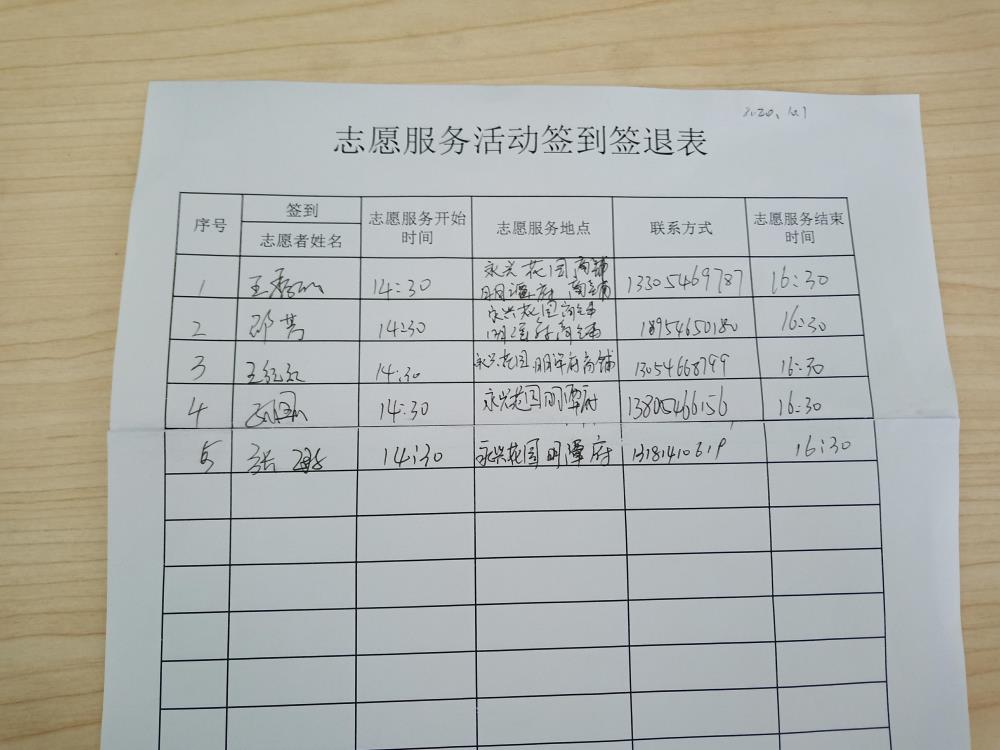 志愿服务活动签到签退表
序号
签到
志愿者姓名
志愿服务开始
时间
志愿服务地点
联系方式
志愿服务结束
时间
1
14:30
永兴花园商铺
明潭府商铺
13305469787
16:30
2
14:30
永兴花园商铺
明潭府商铺
18954650180
16:30
3
王红红
14:30
永兴花园.明潭府商铺
13054668799
16:30
4
14:30
永兴花园明潭府
13805466156
16:30
5
14:30
永兴花园明潭府
16:30